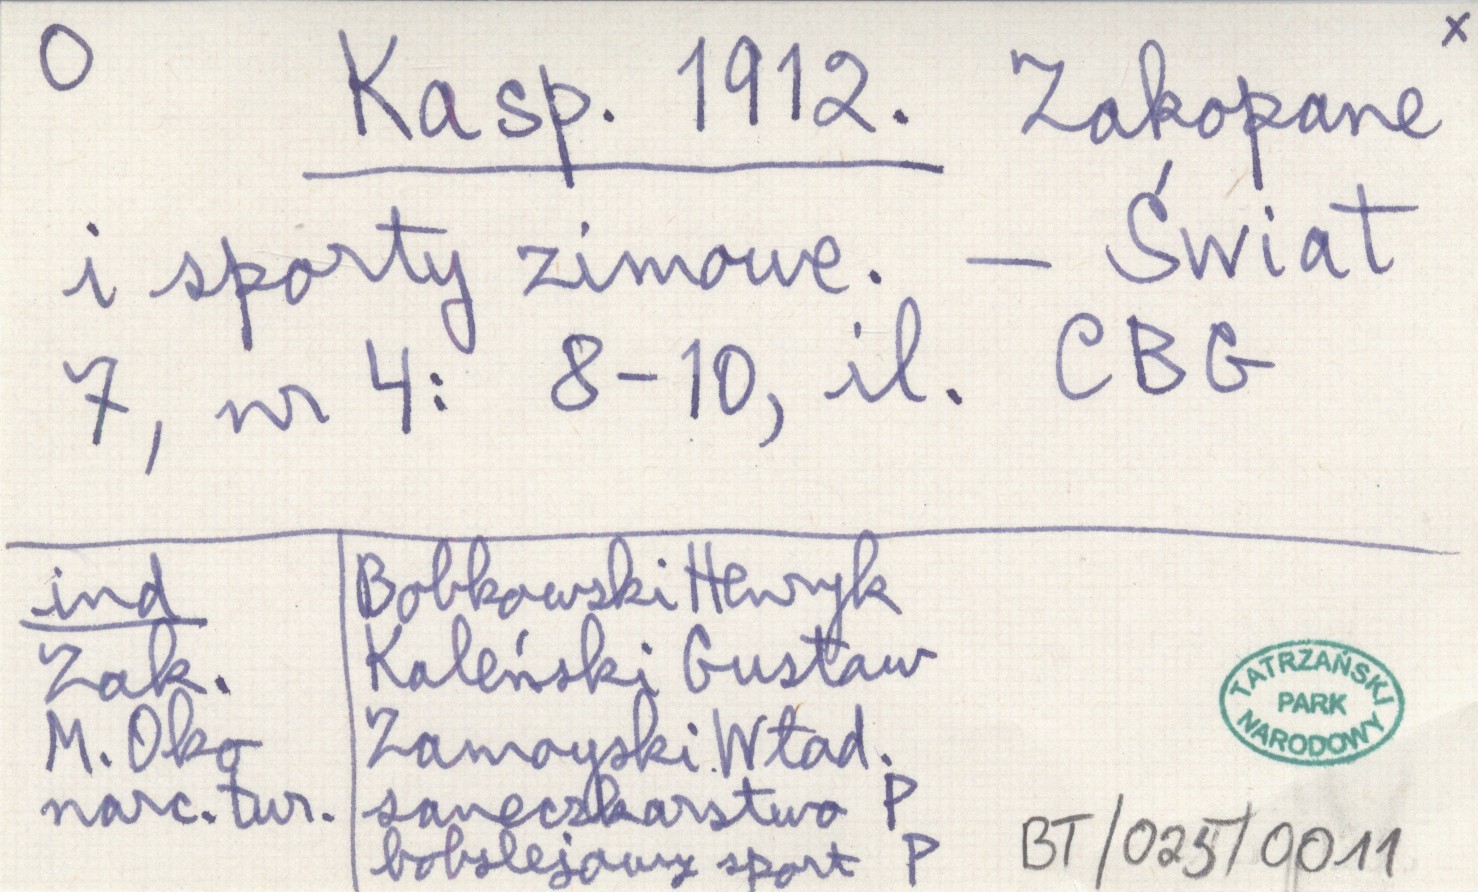 O x
Kasp. 1912. Zakopane
i sporty zimowe. – Świat
7, nr 4: 8–10, il. CBG
ind
Zak.
M. Oko
narc. tur.
Bobkowski Henryk
Kaleński Gustaw
Zamoyski Wład.
saneczkarstwo P
bobslejowy sport P
TATRZAŃSKI
PARK
NARODOWY
BT/025/0011